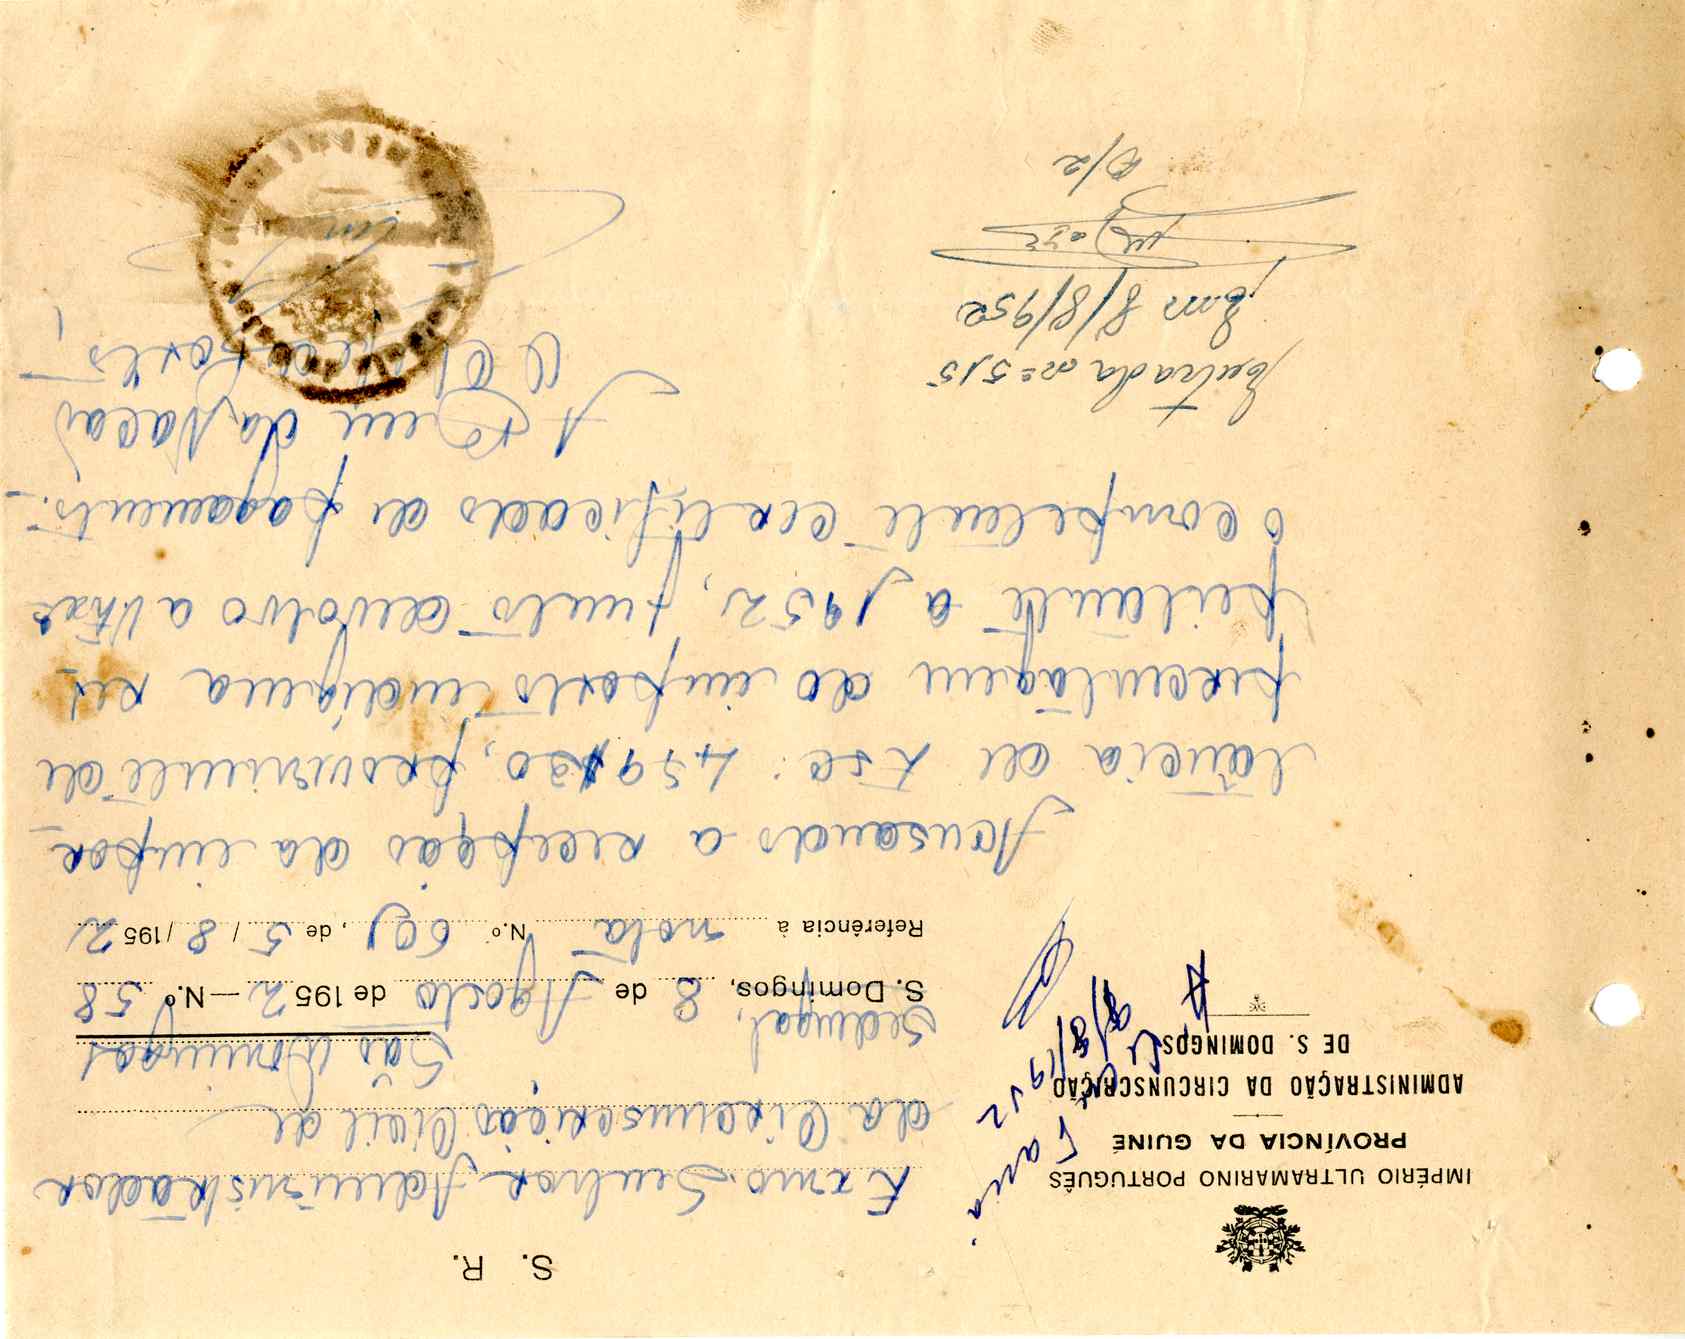 S. R.
IMPÉRIO ULTRAMARINO PORTUGUÊS
PROVÍNCIA DA GUINÉ
ADMINISTRAÇÃO DA CIRCUNSCRIÇÃO
DE S. DOMINGOS
Exmo. Senhor Administrador
da Circunscrição Civil de
São Domingos
Sedengal,
S. Domingos, 8 de Agosto de 1952 — N.º 58
Referência à nota N.º 601, de 5 / 8 / 1952
8/8/1952
Acusando a recepção da impor
tância de Esc: 459$30, proveniente de
percentagem do imposto indígena res
peitante a 1952, junto devolvo a V. Exª
o competente certificado de pagamento.
A Bem da Nação
O Chefe do Posto,
Entrada nº 515
Em 8/8/952
D/2